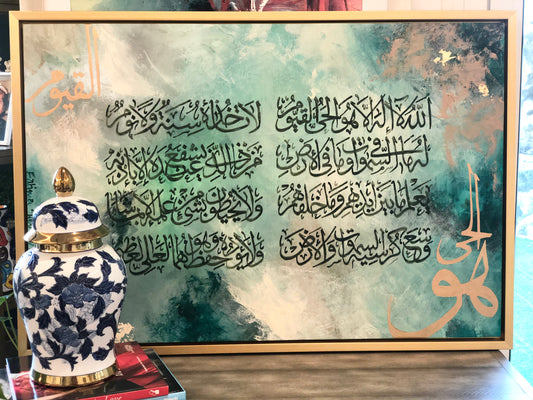 القيوم
الله لا إله إلا هو الحي القيوم لا تأخذه سنة ولا نوم
له ما في السموات وما في الأرض من ذا الذي يشفع عنده إلا بإذنه
يعلم ما بين أيديهم وما خلفهم ولا يحيطون بشيء من علمه إلا بما شاء
وسع كرسيه السموات والأرض ولا يؤوده حفظهما وهو العلي العظيم
الحي
هو